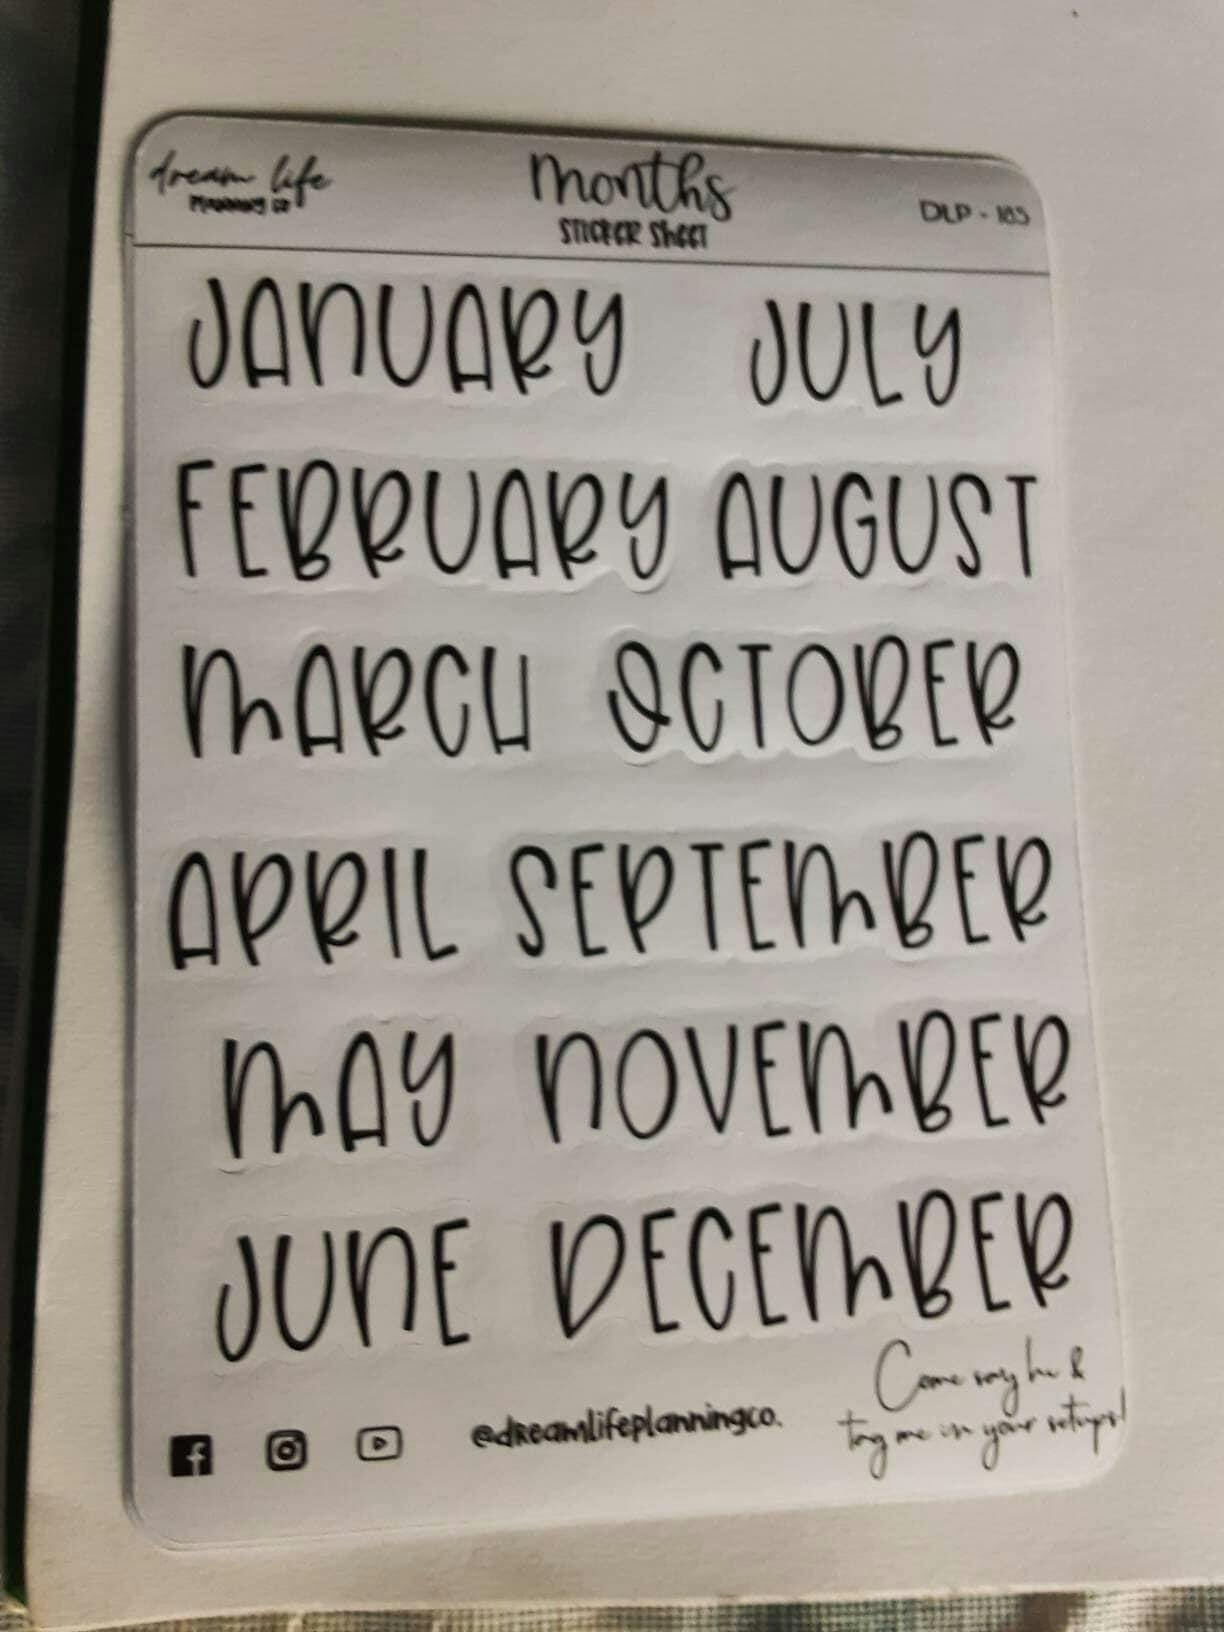 dream life
PLANNING CO
months
STICKER SHEET
DLP - 185
JANUARY JULY
FEBRUARY AUGUST
MARCH OCTOBER
APRIL SEPTEMBER
MAY NOVEMBER
JUNE DECEMBER
@dreamlifeplanningco.
Come say hi &
tag me in your setups!